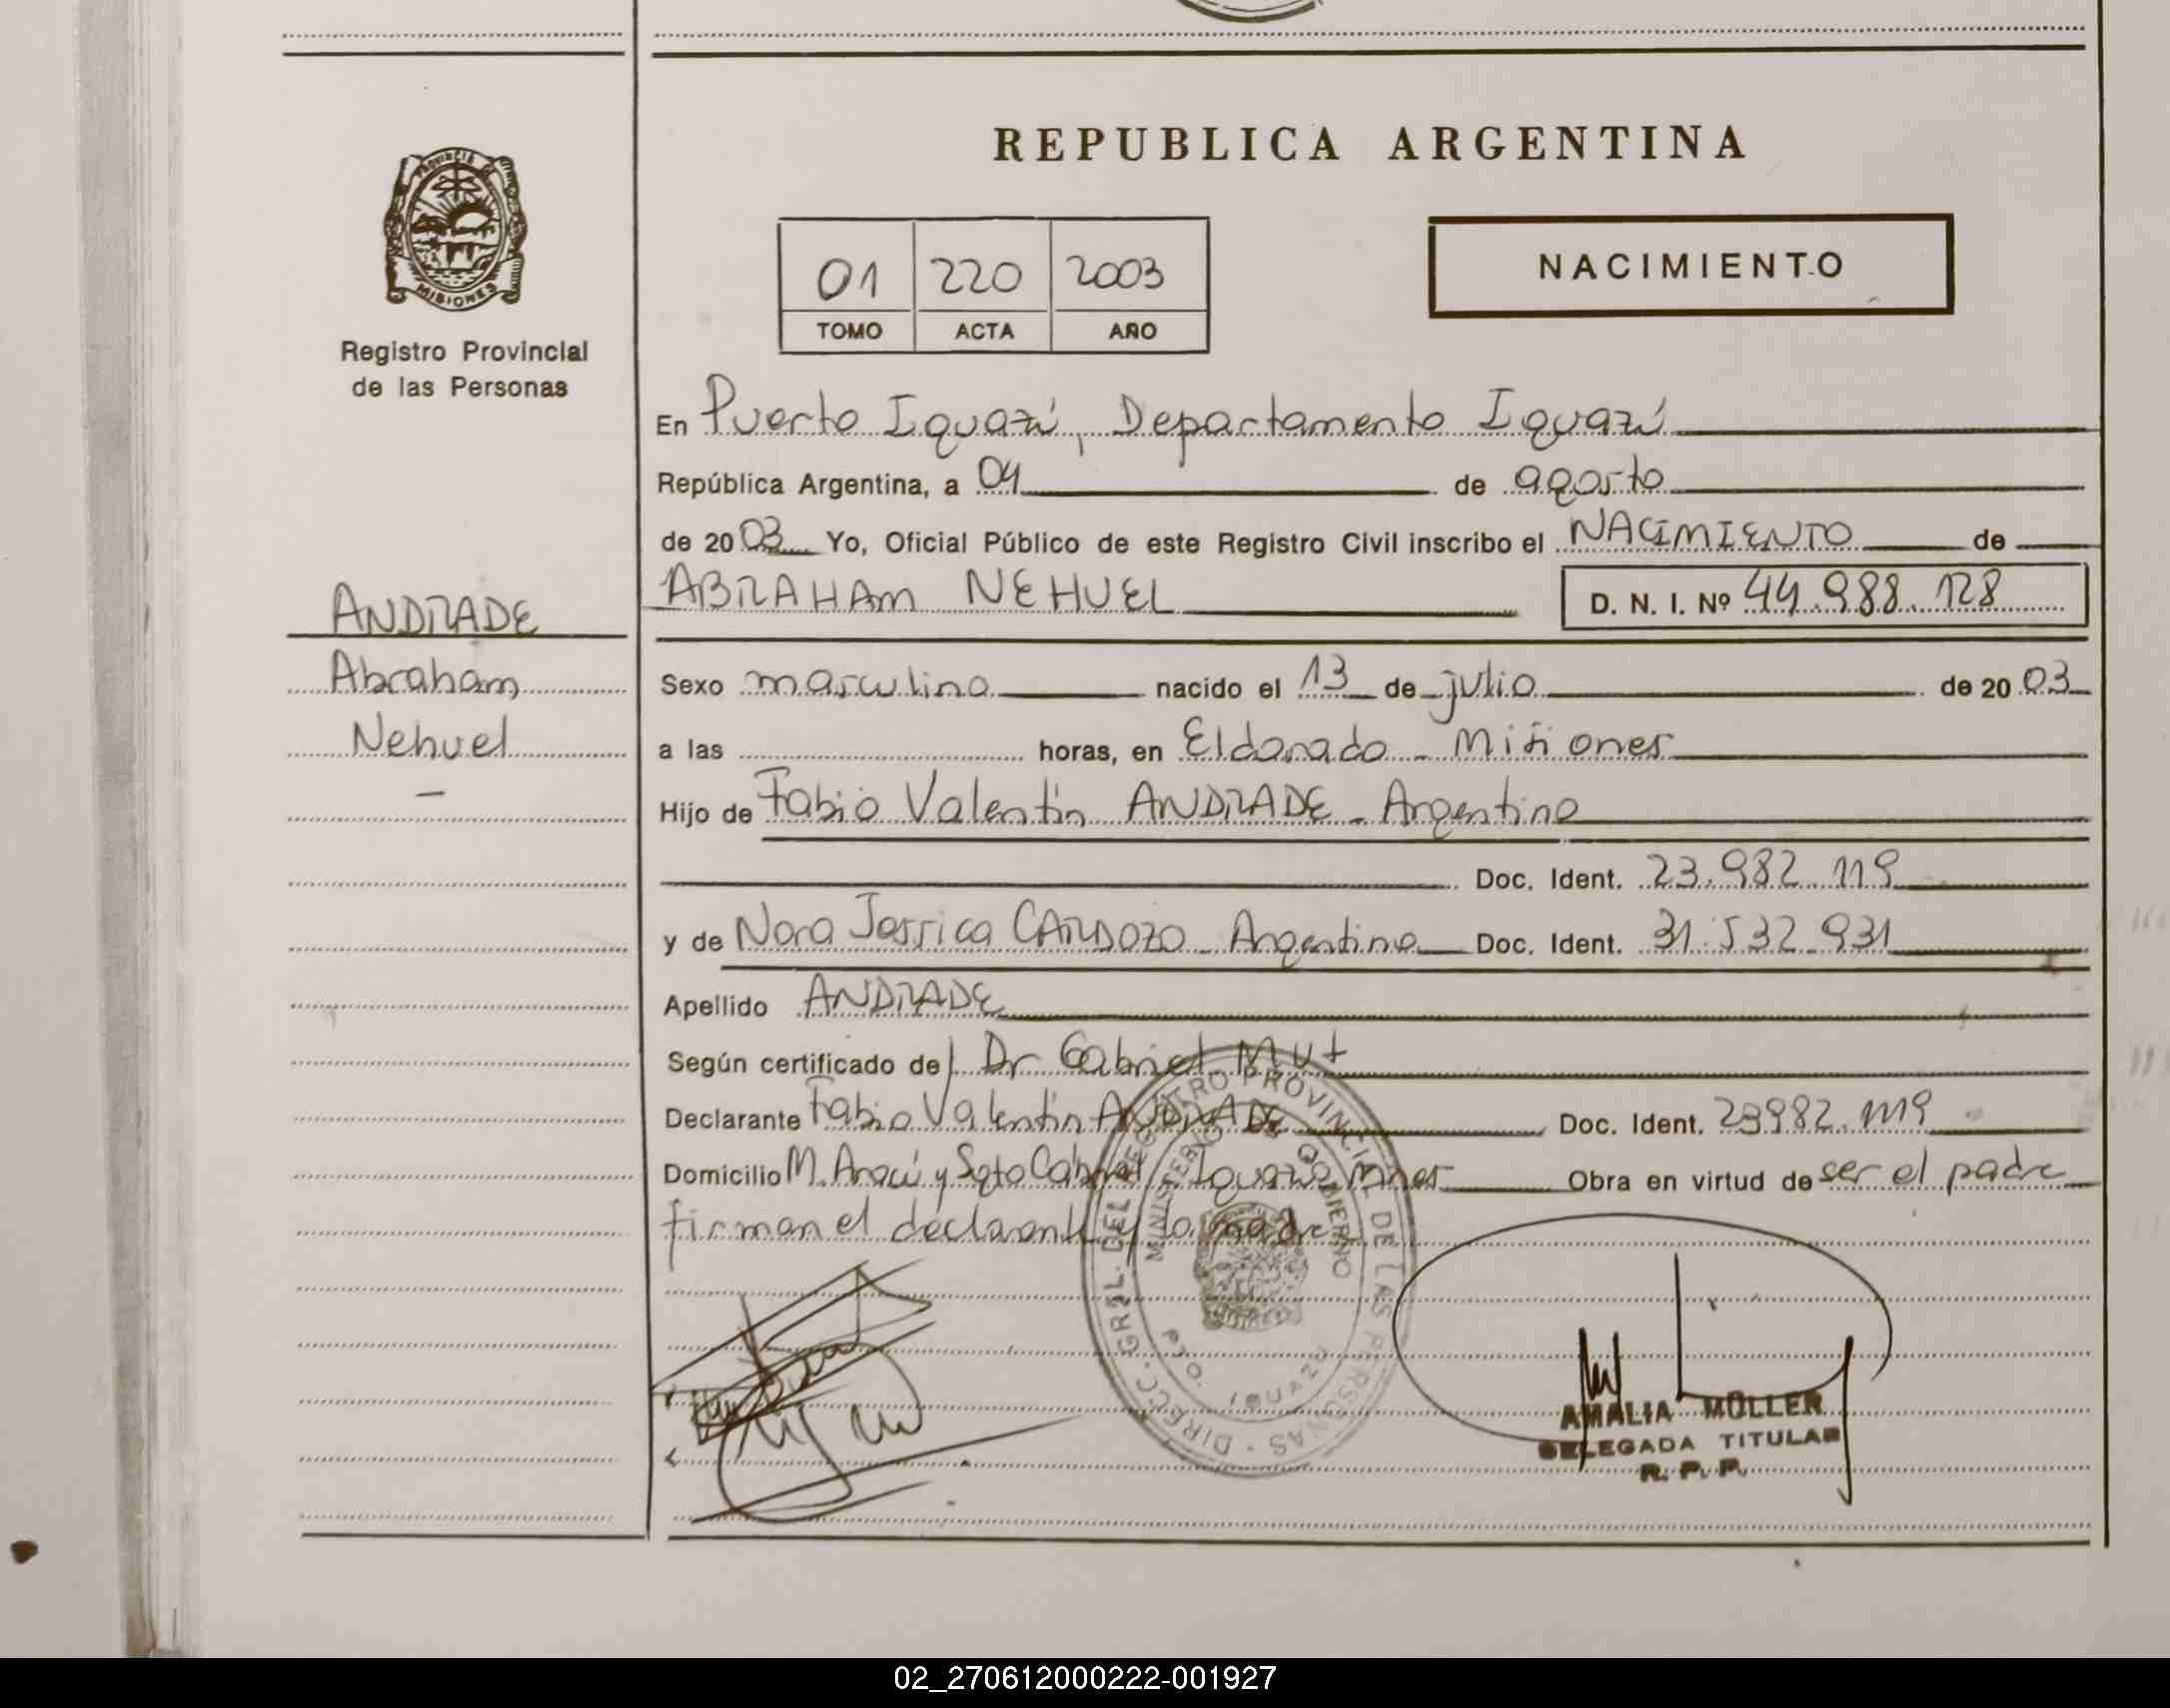 REPUBLICA ARGENTINA
PROVINCIA
MISIONES
Registro Provincial
de las Personas
01 220 2003
TOMO ACTA AÑO
NACIMIENTO
En Puerto Iguazú, Departamento Iguazú
República Argentina, a 04 de agosto
de 2003 Yo, Oficial Público de este Registro Civil inscribo el NACIMIENTO de
ABRAHAM NEHUEL D. N. I. Nº 44.988.128
ANDRADE
Abraham
Nehuel
Sexo masculino nacido el 13 de julio de 2003
a las horas, en Eldorado - Misiones
Hijo de Fabio Valentín ANDRADE - Argentino
Doc. Ident. 23.982.119
y de Nora Jessica CARDOZO - Argentina Doc. Ident. 31.532.931
Apellido ANDRADE
Según certificado del Dr Gabriel Mut
Declarante Fabio Valentín ANDRADE Doc. Ident. 23982.119
Domicilio M. Aracú y Sgto Cabral Iguazú Mnes Obra en virtud de ser el padre
firman el declarante y la madre
DIRECC. GRAL. DEL REGISTRO PROVINCIAL DE LAS PERSONAS
MINISTERIO DE GOBIERNO
PTO. IGUAZU
AMALIA MÜLLER
DELEGADA TITULAR
R. P. P.
02_270612000222-001927